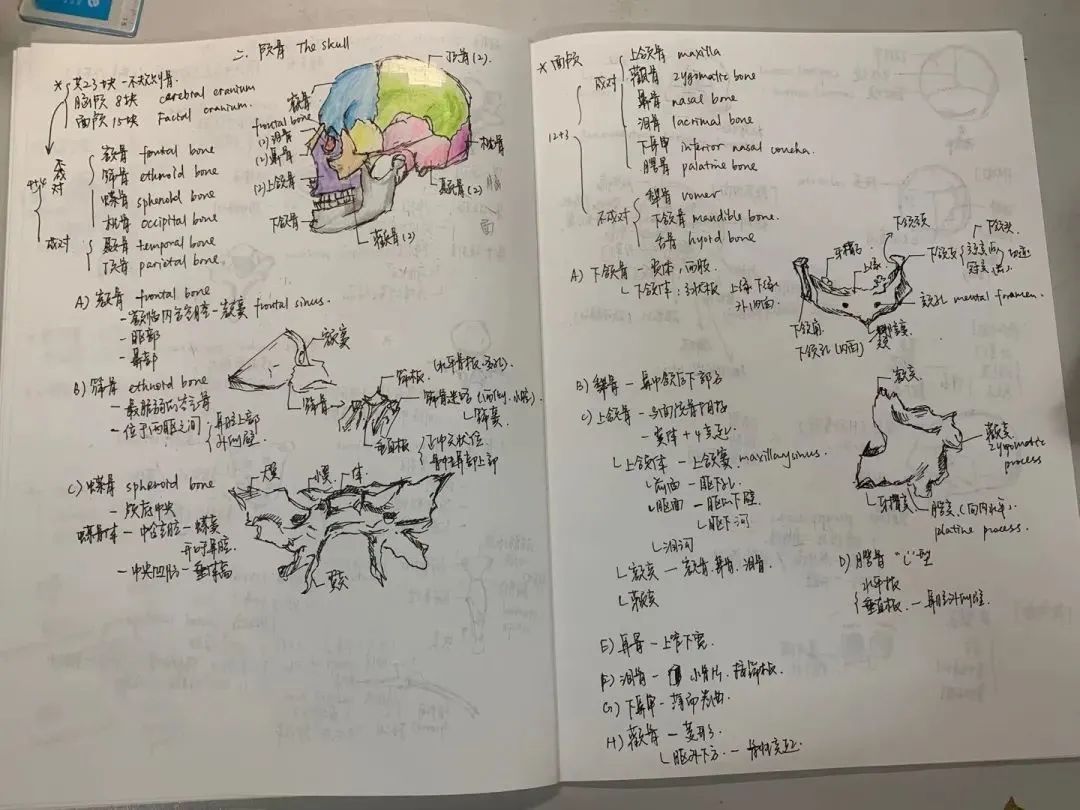 二、颅骨 The skull
* 共23块-不规则骨.
脑颅 8块 cerebral cranium
面颅 15块 Facial cranium.
4+4
不成对
额骨 frontal bone
筛骨 ethmoid bone
蝶骨 sphenoid bone
枕骨 occipital bone
成对
颞骨 temporal bone
顶骨 parietal bone
顶骨(2)
额骨
frontal bone
(2)泪骨
(2)鼻骨
(2)上颌骨
下颌骨
枕骨
颞骨(2)
颧骨(2)
脑
面
A) 额骨 frontal bone
- 额窦 frontal sinus.
- 眶部
- 鼻部
额窦
B) 筛骨 ethmoid bone
- 最脆弱的含气骨
- 位于两眶之间
鼻腔上部
外侧壁
筛骨
筛板 (水平骨板·多孔).
筛骨迷路
筛窦
垂直板
正中矢状位
C) 蝶骨 sphenoid bone
- 颅底中央
蝶骨体 - 中含气腔 - 蝶窦
开口于鼻腔.
- 中央凹陷 - 垂体窝
大翼
小翼
体
翼突
* 面颅
12+3
成对
上颌骨 maxilla
颧骨 zygomatic bone
鼻骨 nasal bone
泪骨 lacrimal bone
下鼻甲 inferior nasal concha.
腭骨 palatine bone
不成对
犁骨 vomer
下颌骨 mandible bone.
舌骨 hyoid bone
A) 下颌骨 - 一体, 两支
下颌体: 弓状板 上缘 下缘
外内面
牙槽弓
上缘
下颌头
下颌支
颏孔 mental foramen.
下颌角
下颌孔(内面)
B) 犁骨 - 鼻中隔后下部分
C) 上颌骨 - 与面颅骨相接
- 一体 + 4突起
上颌体 - 上颌窦 maxillary sinus.
前面 - 眶下孔
眶面 - 眶下壁
眶下沟
泪沟
额突 - 额骨.鼻骨.泪骨.
颧突
额突
颧突
zygomatic
process
牙槽突
腭突 (向内水平).
platine process.
D) 腭骨 "L"型
水平板
垂直板. - 鼻腔外侧壁.
E) 鼻骨 - 上窄下宽.
F) 泪骨 - 小骨片. 接筛板.
G) 下鼻甲 - 薄而卷曲.
H) 颧骨 - 菱形
眶外下方. - 骨性突起